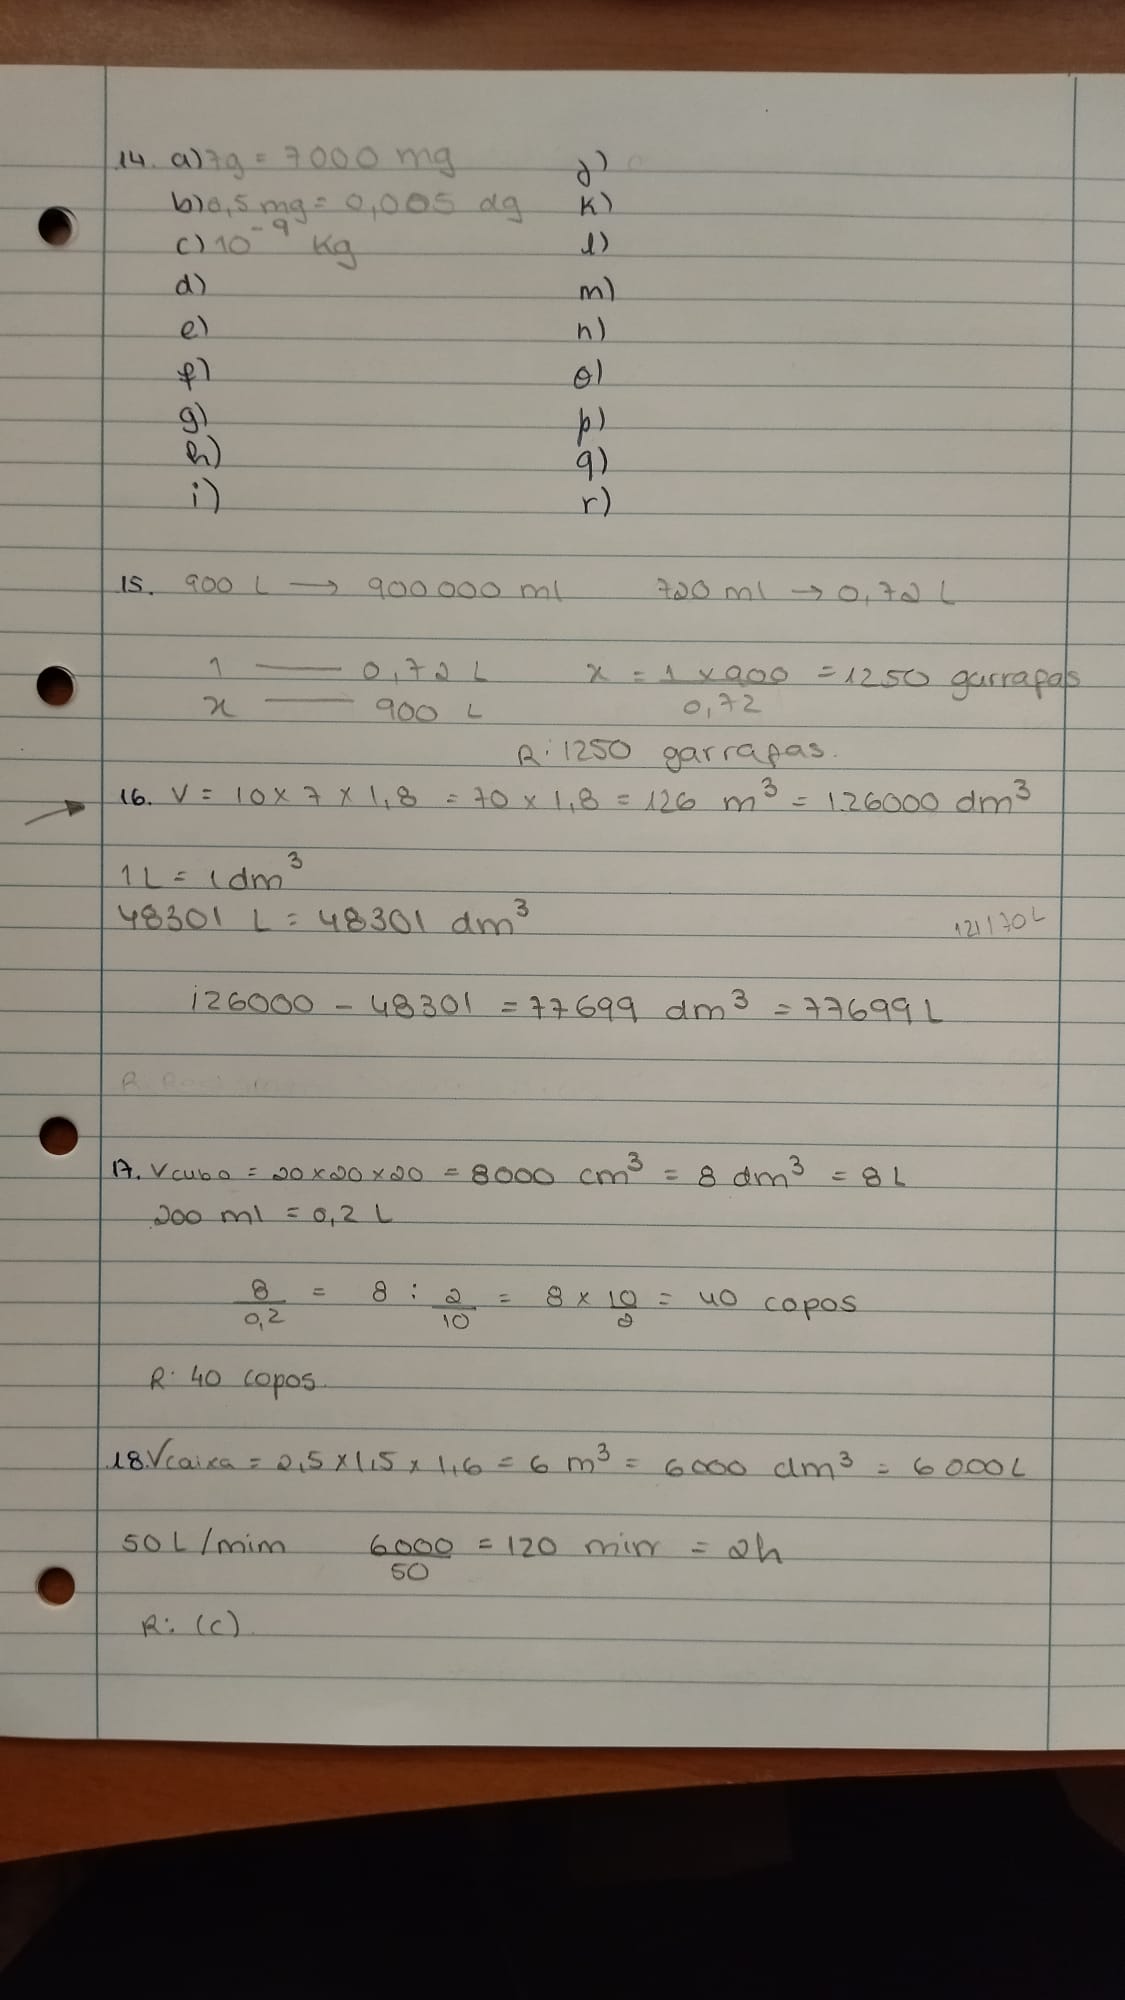 14. a) 7g = 7000 mg
b) 0,5 mg = 0,005 dg
c) 10⁻⁹ Kg
d)
e)
f)
g)
h)
i)
j)
k)
l)
m)
n)
o)
p)
q)
r)
15. 900 L → 900000 ml 720 ml → 0,72 L
1 — 0,72 L x = 1 x 900 = 1250 garrafas
x — 900 L 0,72
R: 1250 garrafas.
16. V = 10 x 7 x 1,8 = 70 x 1,8 = 126 m³ = 126000 dm³
1 L = 1 dm³
48301 L = 48301 dm³
126000 - 48301 = 77699 dm³ = 77699 L
R:
17. Vcubo = 20 x 20 x 20 = 8000 cm³ = 8 dm³ = 8 L
200 ml = 0,2 L
8/0,2 = 8 : 2/10 = 8 x 10/2 = 40 copos
R: 40 copos.
18. Vcaixa = 2,5 x 1,5 x 1,6 = 6 m³ = 6000 dm³ = 6000 L
50 L/mim 6000/50 = 120 min = 2h
R: (c)